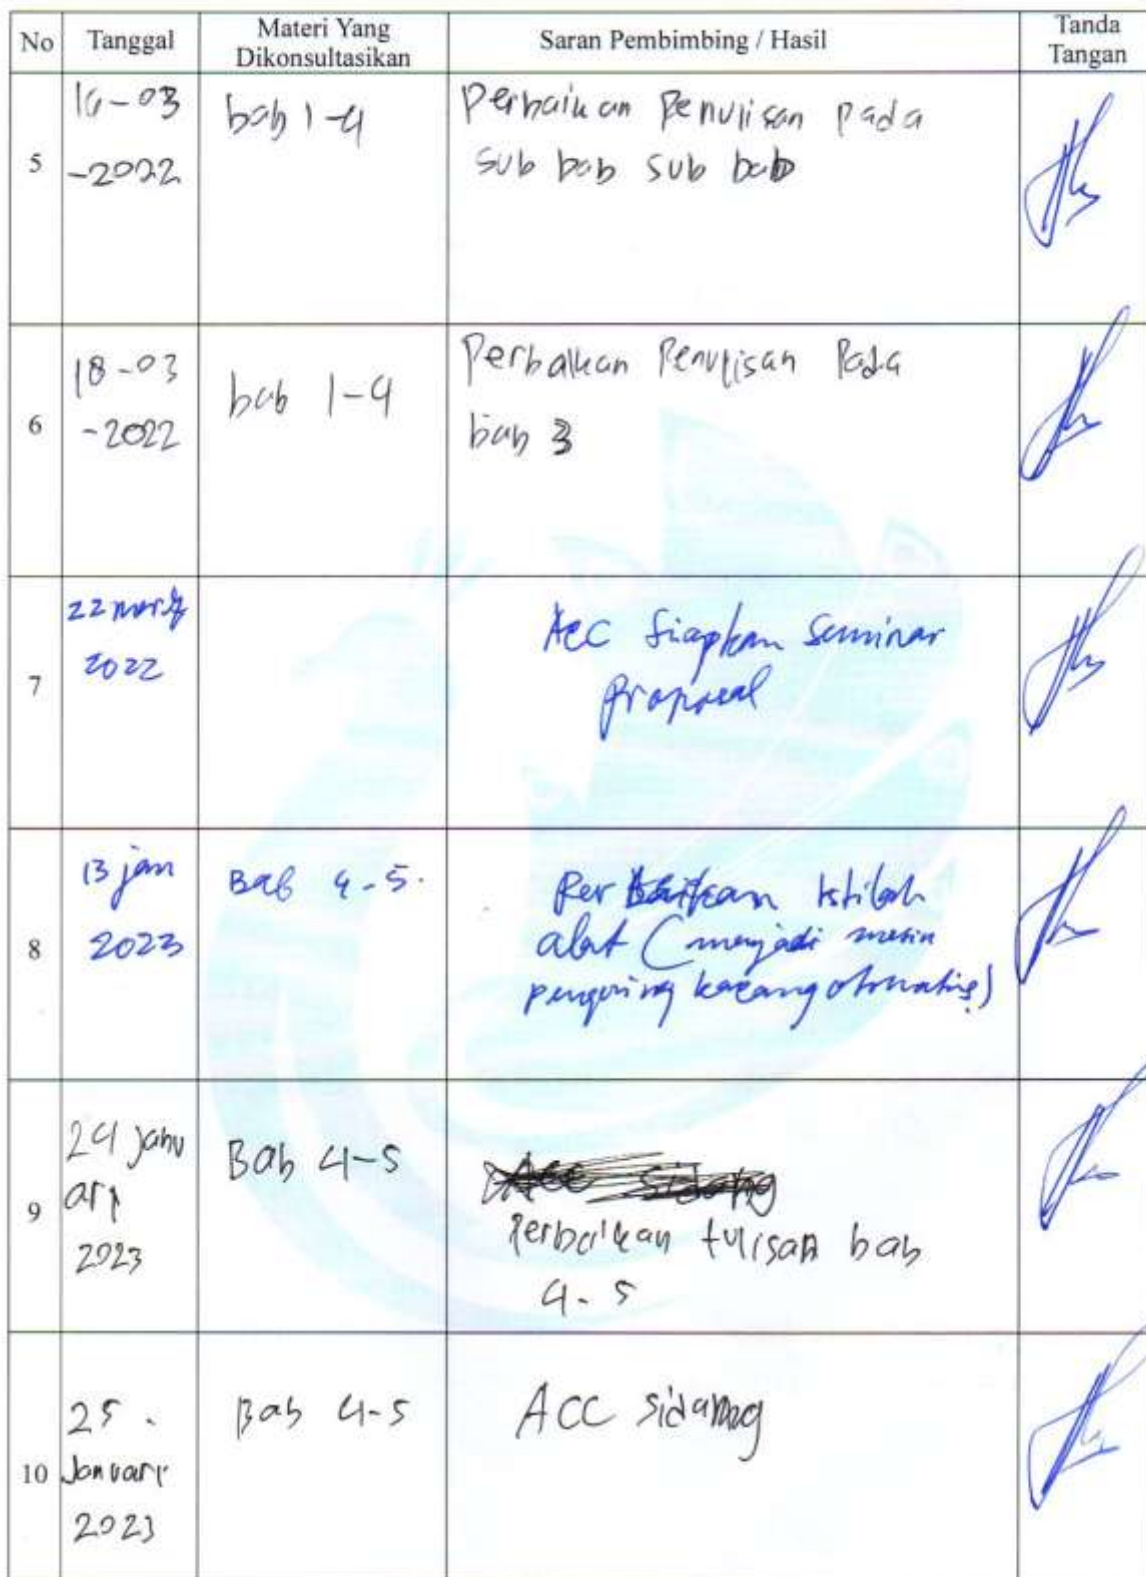 No Tanggal Materi Yang Dikonsultasikan Saran Pembimbing / Hasil Tanda Tangan
5
-03
-2022
bab 1-4
Perbaikan Penulisan Pada
sub bab sub bab
6
18-03
-2022
bab 1-4
Perbaikan Penulisan Pada
bab 3
7
22 maret
2022
Acc Siapkan Seminar
Proposal
8
13 jan
2023
Bab 4-5.
Perbaikan istilah
alat (menjadi mesin
pengering kacang otomatis)
9
24 Janu
ari
2023
Bab 4-5
Acc Sidang
Perbaikan tulisan bab
4-5
10
25.
Januari
2023
Bab 4-5
ACC Sidang